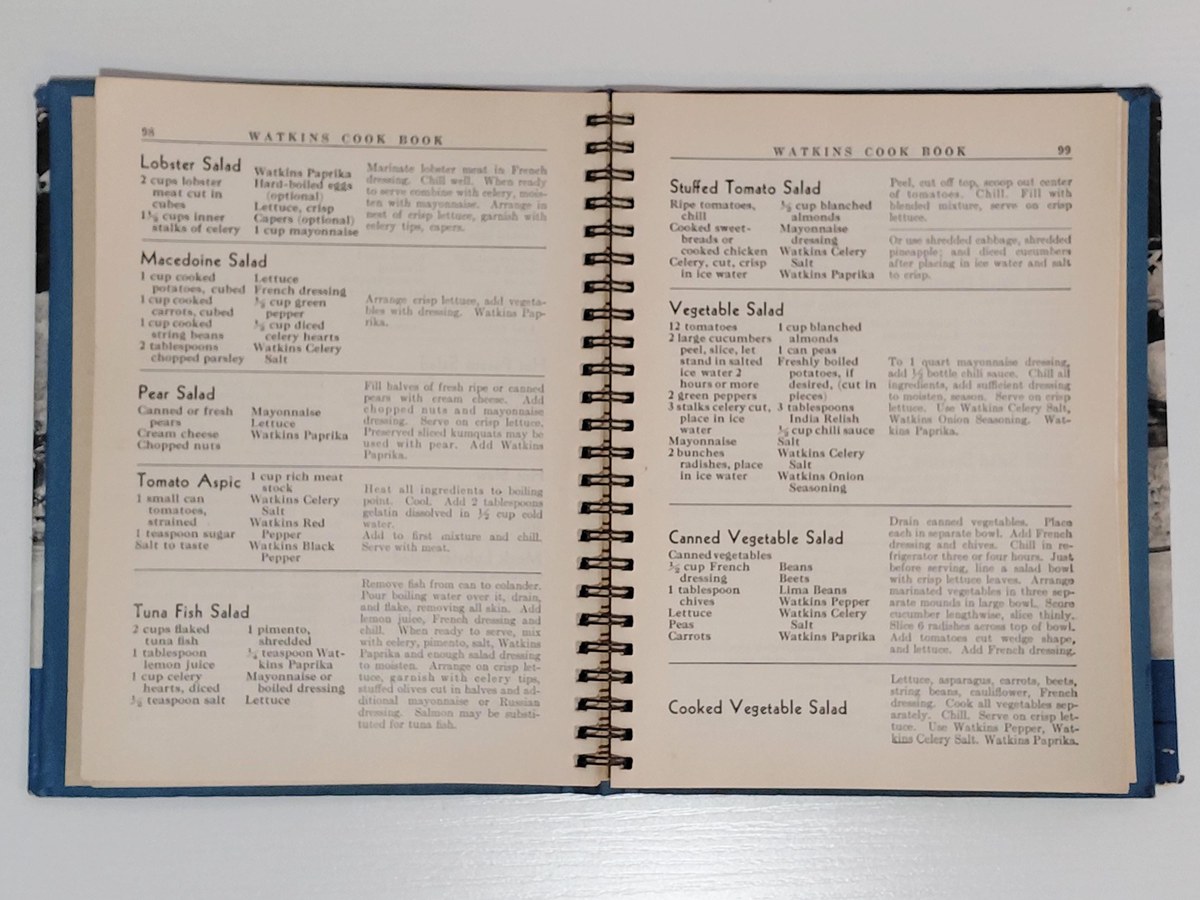 98
WATKINS COOK BOOK
Lobster Salad
2 cups lobster
meat cut in
cubes
1½ cups inner
stalks of celery
Watkins Paprika
Hard-boiled eggs
(optional)
Lettuce, crisp
Capers (optional)
1 cup mayonnaise
Marinate lobster meat in French
dressing. Chill well. When ready
to serve combine with celery, mois-
ten with mayonnaise. Arrange in
nest of crisp lettuce, garnish with
celery tips, capers.
Macedoine Salad
1 cup cooked
potatoes, cubed
1 cup cooked
carrots, cubed
1 cup cooked
string beans
2 tablespoons
chopped parsley
Lettuce
French dressing
cup green
pepper
cup diced
celery hearts
Watkins Celery
Salt
Arrange crisp lettuce, add vegeta-
bles with dressing. Watkins Pap-
rika.
Pear Salad
Canned or fresh
pears
Cream cheese
Chopped nuts
Mayonnaise
Lettuce
Watkins Paprika
Fill halves of fresh ripe or canned
pears with cream cheese. Add
chopped nuts and mayonnaise
dressing. Serve on crisp lettuce.
Preserved sliced kumquats may be
used with pear. Add Watkins
Paprika.
Tomato Aspic
1 small can
tomatoes,
strained
1 teaspoon sugar
Salt to taste
1 cup rich meat
stock
Watkins Celery
Salt
Watkins Red
Pepper
Watkins Black
Pepper
Heat all ingredients to boiling
point. Cool. Add 2 tablespoons
gelatin dissolved in ½ cup cold
water.
Add to first mixture and chill.
Serve with meat.
Tuna Fish Salad
2 cups flaked
tuna fish
1 tablespoon
lemon juice
1 cup celery
hearts, diced
teaspoon salt
1 pimento,
shredded
teaspoon Wat-
kins Paprika
Mayonnaise or
boiled dressing
Lettuce
Remove fish from can to colander.
Pour boiling water over it, drain,
and flake, removing all skin. Add
lemon juice, French dressing and
chill. When ready to serve, mix
with celery, pimento, salt, Watkins
Paprika and enough salad dressing
to moisten. Arrange on crisp let-
tuce, garnish with celery tips,
stuffed olives cut in halves and ad-
ditional mayonnaise or Russian
dressing. Salmon may be substi-
tuted for tuna fish.
WATKINS COOK BOOK
99
Stuffed Tomato Salad
Ripe tomatoes,
chill
Cooked sweet-
breads or
cooked chicken
Celery, cut, crisp
in ice water
cup blanched
almonds
Mayonnaise
dressing
Watkins Celery
Salt
Watkins Paprika
Peel, cut off top, scoop out center
of tomatoes. Chill. Fill with
blended mixture, serve on crisp
lettuce.
Or use shredded cabbage, shredded
pineapple; and diced cucumbers
after placing in ice water and salt
to crisp.
Vegetable Salad
12 tomatoes
2 large cucumbers
peel, slice, let
stand in salted
ice water 2
hours or more
2 green peppers
3 stalks celery cut,
place in ice
water
Mayonnaise
2 bunches
radishes, place
in ice water
1 cup blanched
almonds
1 can peas
Freshly boiled
potatoes, if
desired, (cut in
pieces)
3 tablespoons
India Relish
cup chili sauce
Salt
Watkins Celery
Salt
Watkins Onion
Seasoning
To 1 quart mayonnaise dressing,
add ½ bottle chili sauce. Chill all
ingredients, add sufficient dressing
to moisten, season. Serve on crisp
lettuce. Use Watkins Celery Salt,
Watkins Onion Seasoning. Wat-
kins Paprika.
Canned Vegetable Salad
Canned vegetables
cup French
dressing
1 tablespoon
chives
Lettuce
Peas
Carrots
Beans
Beets
Lima Beans
Watkins Pepper
Watkins Celery
Salt
Watkins Paprika
Drain canned vegetables. Place
each in separate bowl. Add French
dressing and chives. Chill in re-
frigerator three or four hours. Just
before serving, line a salad bowl
with crisp lettuce leaves. Arrange
marinated vegetables in three sep-
arate mounds in large bowl. Score
cucumber lengthwise, slice thinly.
Slice 6 radishes across top of bowl.
Add tomatoes cut wedge shape,
and lettuce. Add French dressing.
Cooked Vegetable Salad
Lettuce, asparagus, carrots, beets,
string beans, cauliflower, French
dressing. Cook all vegetables sep-
arately. Chill. Serve on crisp let-
tuce. Use Watkins Pepper, Wat-
kins Celery Salt. Watkins Paprika.